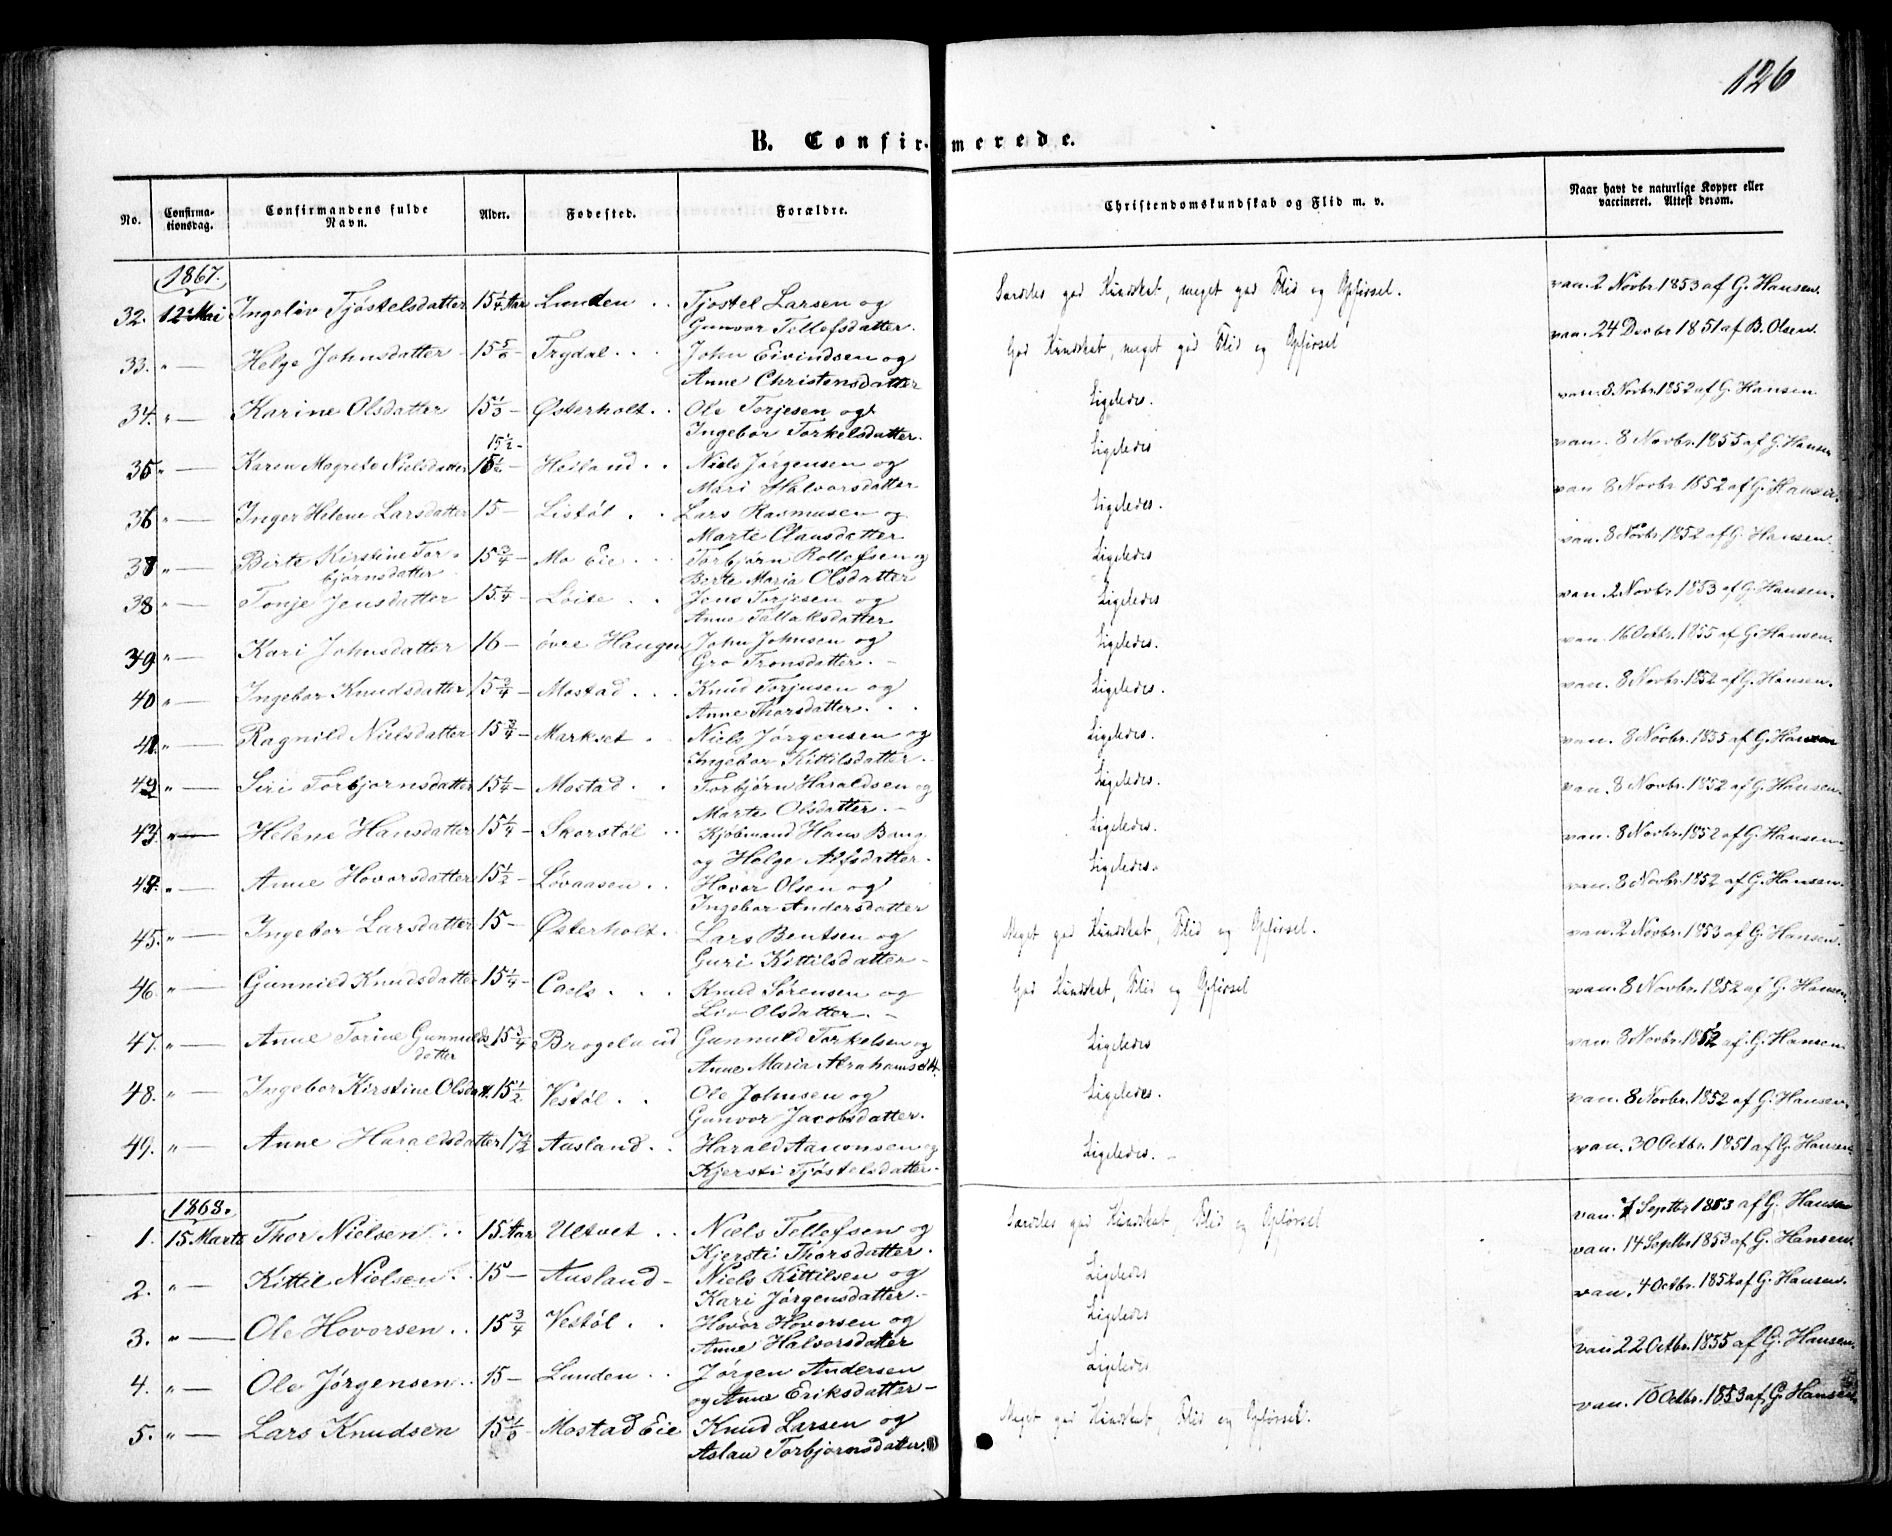 126
B. Confir-merede.
No.
Confirma-
tionsdag.
Confirmandens fulde
Navn.
Alder.
Fødested.
Forældre.
Christendomskundskab og Flid m. v.
Naar havt de naturlige Kopper eller
vaccineret. Attest derom.
1867.
32. 12 Mai Ingeløv Tjøstelsdatter 15 1/4 Aar Lunden . . Tjøstel Larsen og Særdles god Kundskab, meget god Flid og Opførsel. van. 2 Novbr 1853 af G. Hansen.
Gunvor Tellefsdatter.
33. „ — Helge Johnsdatter - Trydal . . . John Eivindsen og God Kundskab, meget god Flid og Opførsel van. 24 Decbr 1851 af B. Olsen.
Anne Christensdatter
34. „ — Karine Olsdatter Østerholt . . Ole Torjesen og Ligeledes. van. 8 Novbr. 1852 af G. Hansen.
Ingebor Torkelsdatter.
15 1/2 -
35 „ — Karen Magrete Nielsdatter 15 1/2 — Heiland . . Niels Jørgensen og Ligeledes van. 8 Novbr. 1855 af G. Hansen
Mari Halvorsdatter
36 „ — Inger Helene Larsdatter 15 — Listøl . . Lars Rasmusen og Ligeledes. van 8 Novbr 1852 af G. Hansen.
Marte Clausdatter
37 „ — Birte Kirstine Tor- 15 3/4 — Mo Eie . . . Torbjørn Rollefsen og Ligeledes van. 8 Novbr. 1852 af G. Hansen.
bjørnsdatter Birte Maria Olsdatter
38 „ — Tonje Jensdatter 15 1/4 - Løite . . Jens Torjesen og Ligeledes van. 2 Novbr. 1853 af G. Hansen.
Anne Tellaksdatter
39 „ — Kari Johnsdatter 16 — øvre Haugen John Johnsen og Ligeledes. van. 16 Octbr. 1855 af G. Hansen.
Gro Tronsdatter. —
40 „ — Ingebor Knudsdatter 15 3/4 — Mostad . . . Knud Torjusen og Ligeledes. van. 8 Novbr. 1852 af G. Hansen.
Anne Thorsdatter . . .
41 „ — Ragnild Nielsdatter 15 3/4 — Markset . Niels Jørgensen og Ligeledes. van. 8 Novbr. 1855 af G. Hansen
Ingebor Kittilsdatter. —
42 „ — Siri Torbjørnsdatter 15 1/4 — Mostad . . Torbjørn Haraldsen og Ligeledes. van. 8 Novbr. 1852 af G. Hansen.
Marte Olsdatter. —
43. „ — Helene Hansdatter 15 1/4 — Skorstøl . . Kjøbmand Hans Bang Ligeledes. van. 8 Novbr. 1852 af G. Hansen.
og Helge Alfsdatter.
44. „ — Anne Hovorsdatter 15 1/2 — Løvaasen . . Hovor Olsen og Ligeledes. van. 8 Novbr. 1852 af G. Hansen.
Ingebor Andersdatter
45. „ — Ingebor Larsdatter 15 — Østerholt . Lars Bentsen og Meget god Kundskab, Flid og Opførsel. van. 2 Novbr. 1853 af G. Hansen.
Guri Kittilsdatter —
46. „ — Gunnild Knudsdatter 15 1/4 — Caels . . . Knud Sørensen og God Kundskab, Flid og Opførsel van. 8 Novbr. 1852 af G. Hansen.
Liv Olsdatter. —
47. „ — Anne Torine Gunnulds- 15 3/4 Brogeland Gunnuld Torkelsen og Ligeledes van. 8 Novbr. 1852 af G. Hansen.
datter Anne Maria Abrahamsdt.
48. „ — Ingebor Kirstine Olsdatt. 15 1/2 Vestøl . . Ole Johnsen og Ligeledes. van. 8 Novbr. 1852 af G. Hansen.
Gunvor Jacobsdatter.
49. „ — Anne Haraldsdatter 17 1/2 Ausland . . Harald Aanonsen og Ligeledes. — van. 30 Octbr. 1851 af G. Hansen
Kjersti Tjøstelsdatter —
1868.
1. 15 Marts Thor Nielsen . . 15 Aar Ultvet . . Niels Tellefsen og Særdles god Kundskab, Flid og Opførsel van. 7 Septbr 1853 af G. Hansen
Kjersti Thorsdatter.
2. „ — Kittil Nielsen . . 15 — Ausland — Niels Kittilsen og Ligeledes van. 14 Septbr. 1853 af G. Hansen.
Kari Jørgensdatter. —
3. „ — Ole Hovorsen . . 15 3/4 Vestøl . . Hovor Hovorsen og Ligeledes van. 4 Octbr. 1852 af G. Hansen.
Anne Halvorsdatter
4. „ — Ole Jørgensen . . 15 — Lunden . . Jørgen Andersen Ligeledes van 22 Octbr. 1855 af G. Hansen.
og Anne Eriksdatter —
5. „ — Lars Knudsen Mostad Eie Knud Larsen og Meget god Kundskab, Flid og Opførsel. van. 10 Octbr. 1853 af G. Hansen
Aslau Torbjørnsdatter.